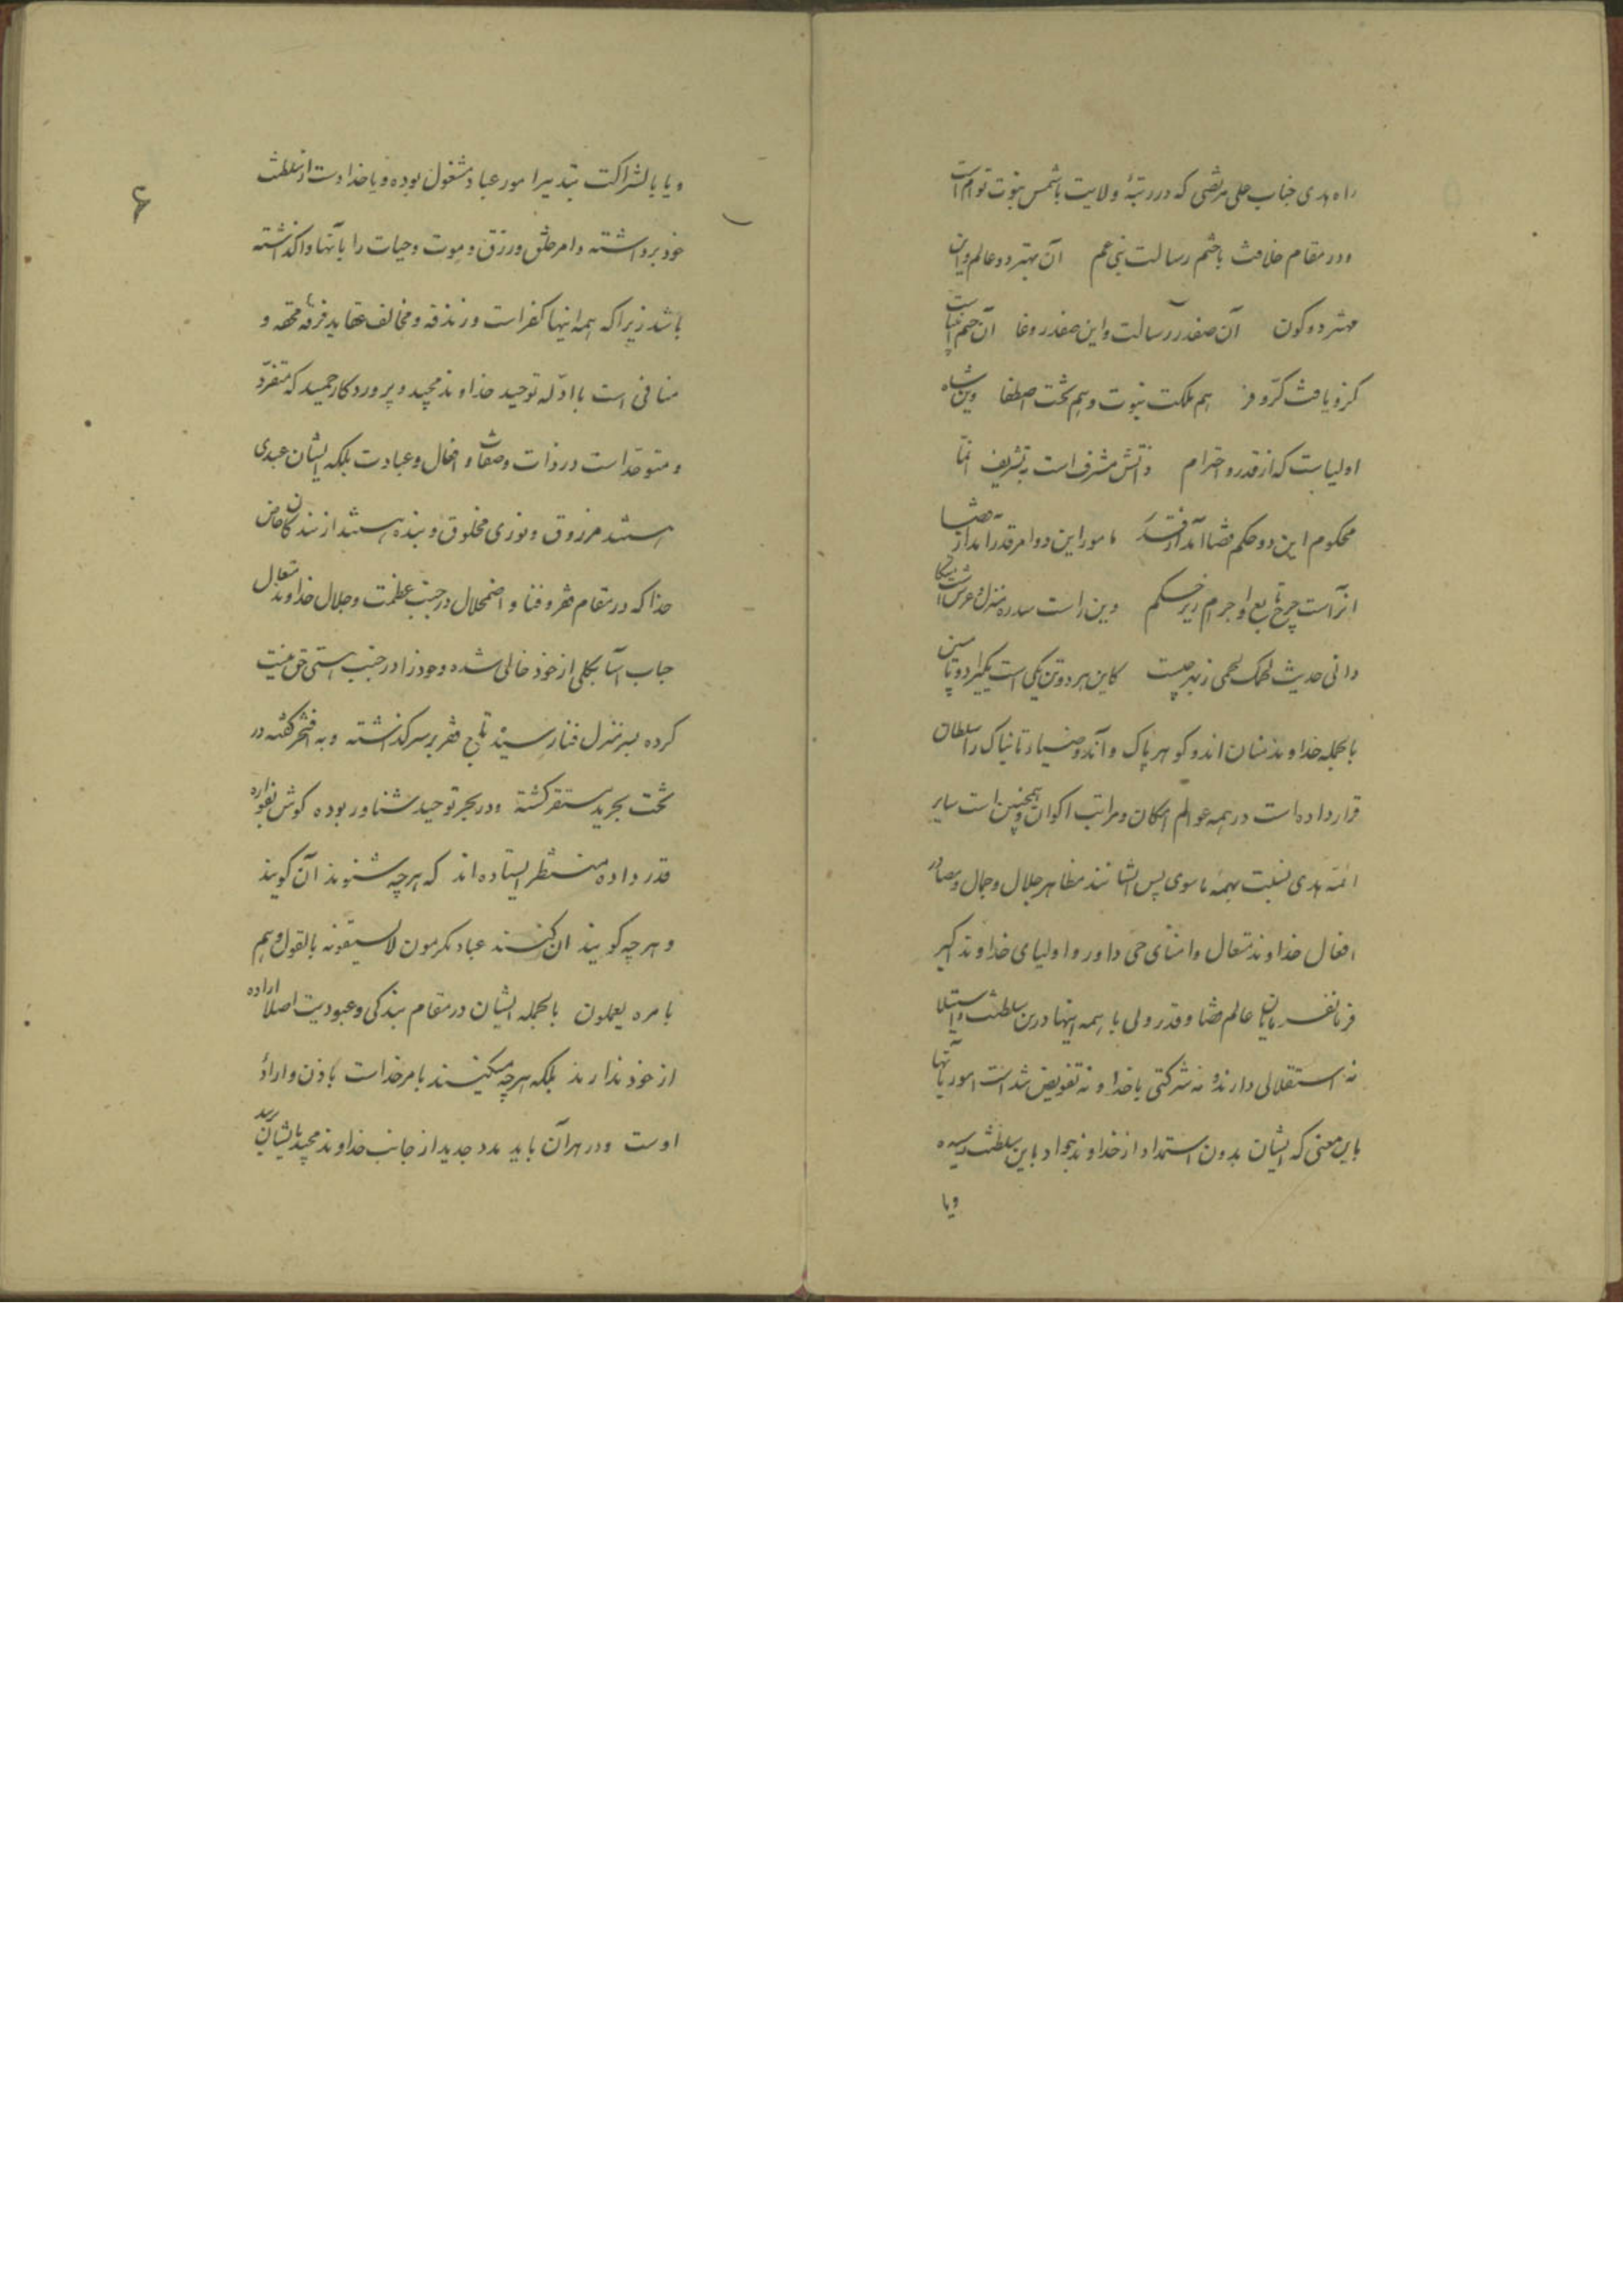 راه هدی جناب علی مرتضی که در رتبهٔ ولایت با شمس نبوت توام است
و در مقام خلافت با ختم رسالت بنی عم آن بهتر دو عالم و این
مهتر دو کون آن صفدر رسالت و این صفدر وغا آن ختم انبیاست
کزو یافت کرّ و فر هم ملکت نبوت و هم تخت اصطفا وین شاه
اولیاست که از قدر و احترام ذاتش مشرف است به تشریف انّما
محکوم این دو حکم قضا آمد از قدر مامور این دو امر قدر آمد از قضا
آنراست چرخ تابع و اجرام زیر حکم وین راست سدره منزل و عرش است
دانی حدیث لحمک لحمی ز بهر چیست کاین هر دو تن یکی است یکی را دو تا مبین
بالجمله خداوند منان اندو کوهر پاک و آندو ضیاء تابناک را سلطان
قرار داده است در همه عوالم امکان و مراتب اکوان و همچنین است سایر
ائمه هدی نسبت بهمه ماسوی پس ایشانند مظاهر جلال و جمال و مصادر
افعال خداوند متعال و امنای حی داور و اولیای خداوند اکبر
فرمانفرمایان عالم قضا و قدر ولی با همه اینها درین سلطنت و استیلا
نه استقلالی دارند و نه شرکتی با خدا و نه تفویض شده است امور بآنها
باین معنی که ایشان بدون استمداد از خداوند جواد باین سلطنت رسیده
ویا
۴
ویا بالشراکت بتدبیر امور عباد مشغول بوده ویا خدا دست از سلطنت
خود برداشته و امر خلق و رزق و موت و حیات را بآنها واگذاشته
باشد زیرا که همه اینها کفر است و زندقه و مخالف عقاید فرقه محقه و
منافی است با ادلّه توحید خداوند مجید و پروردکار حمید که متفرّد
و متوحّد است در ذات و صفات و افعال و عبادت بلکه ایشان عبدی
هستند مرزوق و نوری مخلوق و بنده هستند از بندکان خاص
خدا که در مقام فقر و فنا و اضمحلال در جنب عظمت و جلال خداوند متعال
حباب آسا بکلی از خود خالی شده و خود را در جنب هستی حق نیست
کرده بسر منزل فنا رسیده تاج فقر بر سر کذاشته و به افتخر کفته در
تخت تجرید مستقر کشته و در بحر توحید شناور بوده کوش بفواره
قدر داده منتظر ایستاده اند که هر چه شنوند آن کویند
و هر چه کویند ان کنند عباد مکرمون لا یسبقونه بالقول و هم
بامره یعملون بالجمله ایشان در مقام بندکی و عبودیت اصلا اراده
از خود ندارند بلکه هر چه میکنند بامر خداست باذن و ارادهٔ
اوست و در هر آن باید مدد جدید از جانب خداوند مجید بایشان رسد